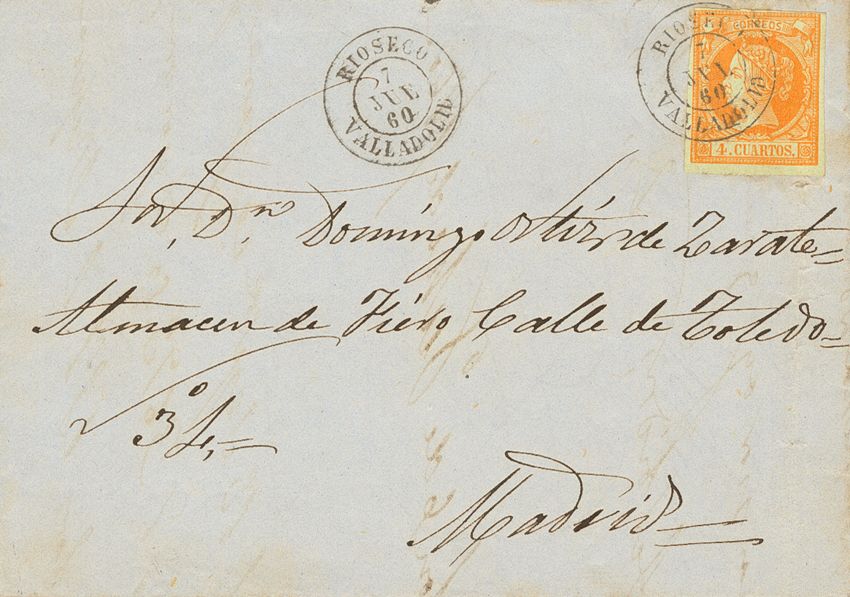 RIOSECO
7
JUL
60
VALLADOLID
RIOSECO
7
JUL
60
VALLADOLID
CORREOS
4. CUARTOS.
Sor. Dn. Domingo Ortiz de Zarate=
Almacen de Fiero Calle de Toledo=
Madrid